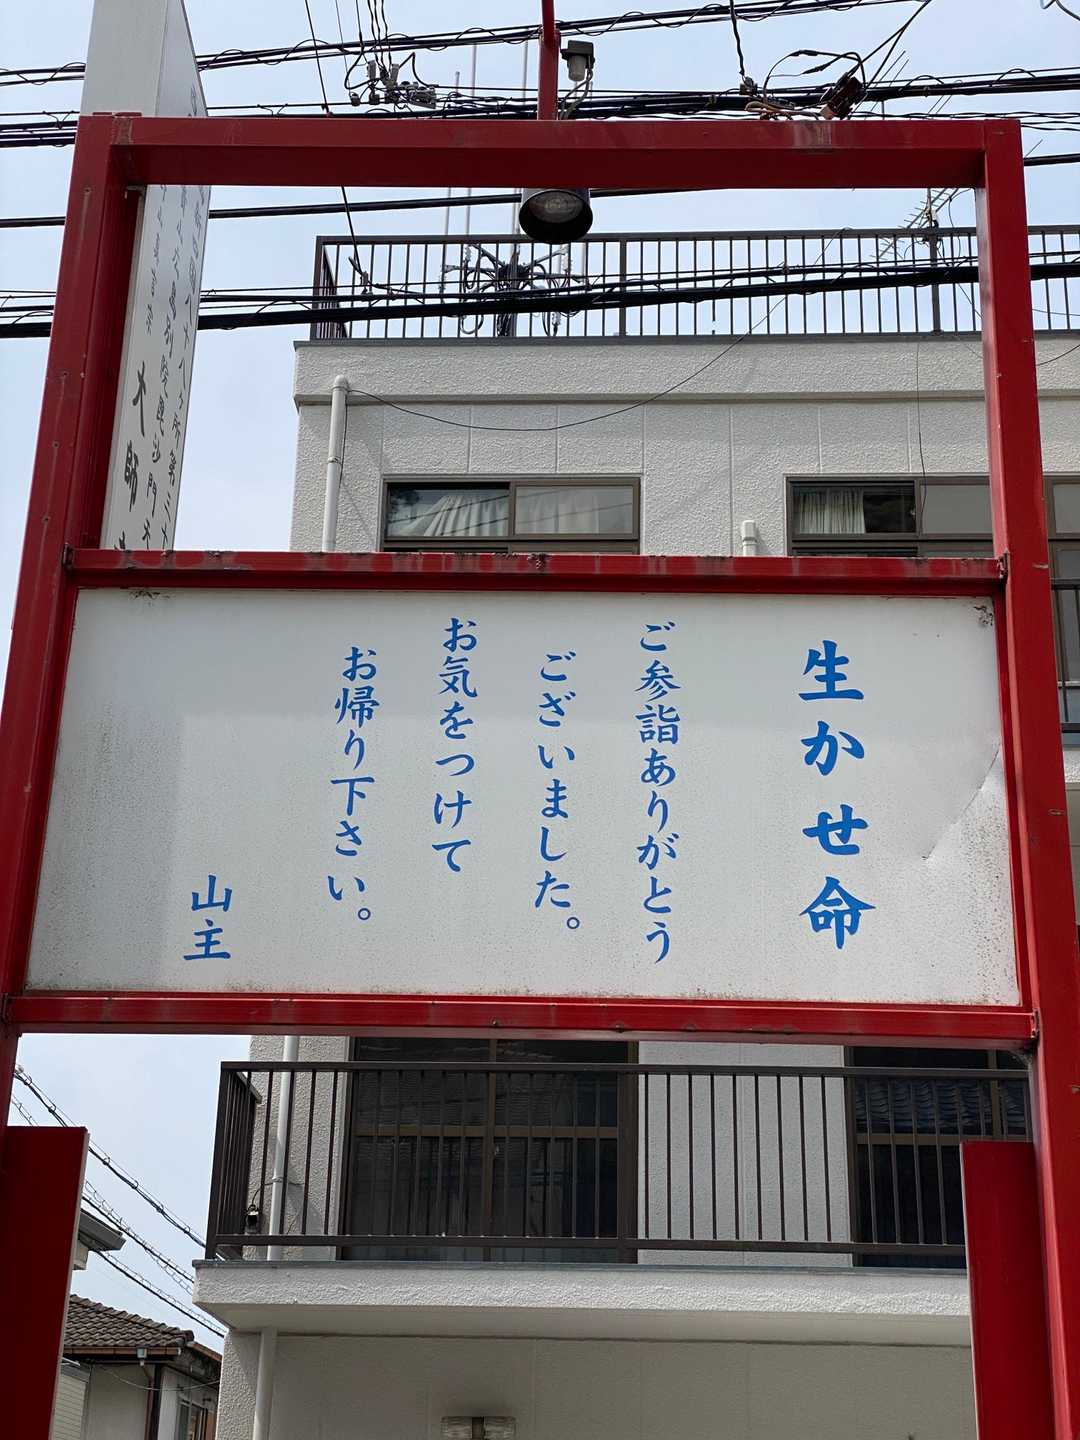 生かせ命
ご参詣ありがとう
ございました。
お気をつけて
お帰り下さい。
山主
八十八ヶ所第三十
別院毘沙門
大師